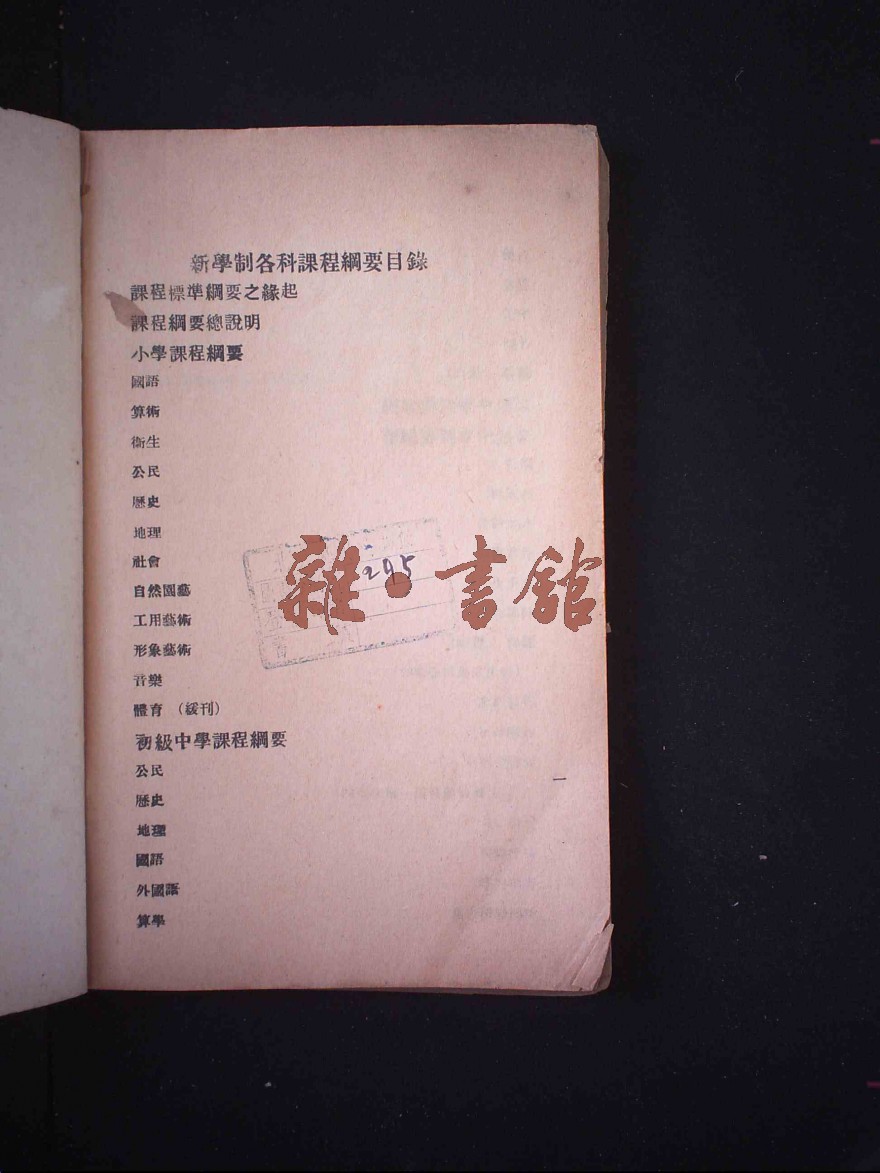 新學制各科課程綱要目錄
課程標準綱要之緣起
課程綱要總說明
小學課程綱要
國語
算術
衞生
公民
歷史
地理
社會
自然園藝
工用藝術
形象藝術
音樂
體育（緩刊）
初級中學課程綱要
公民
歷史
地理
國語
外國語
算學
一
雜·書館
295